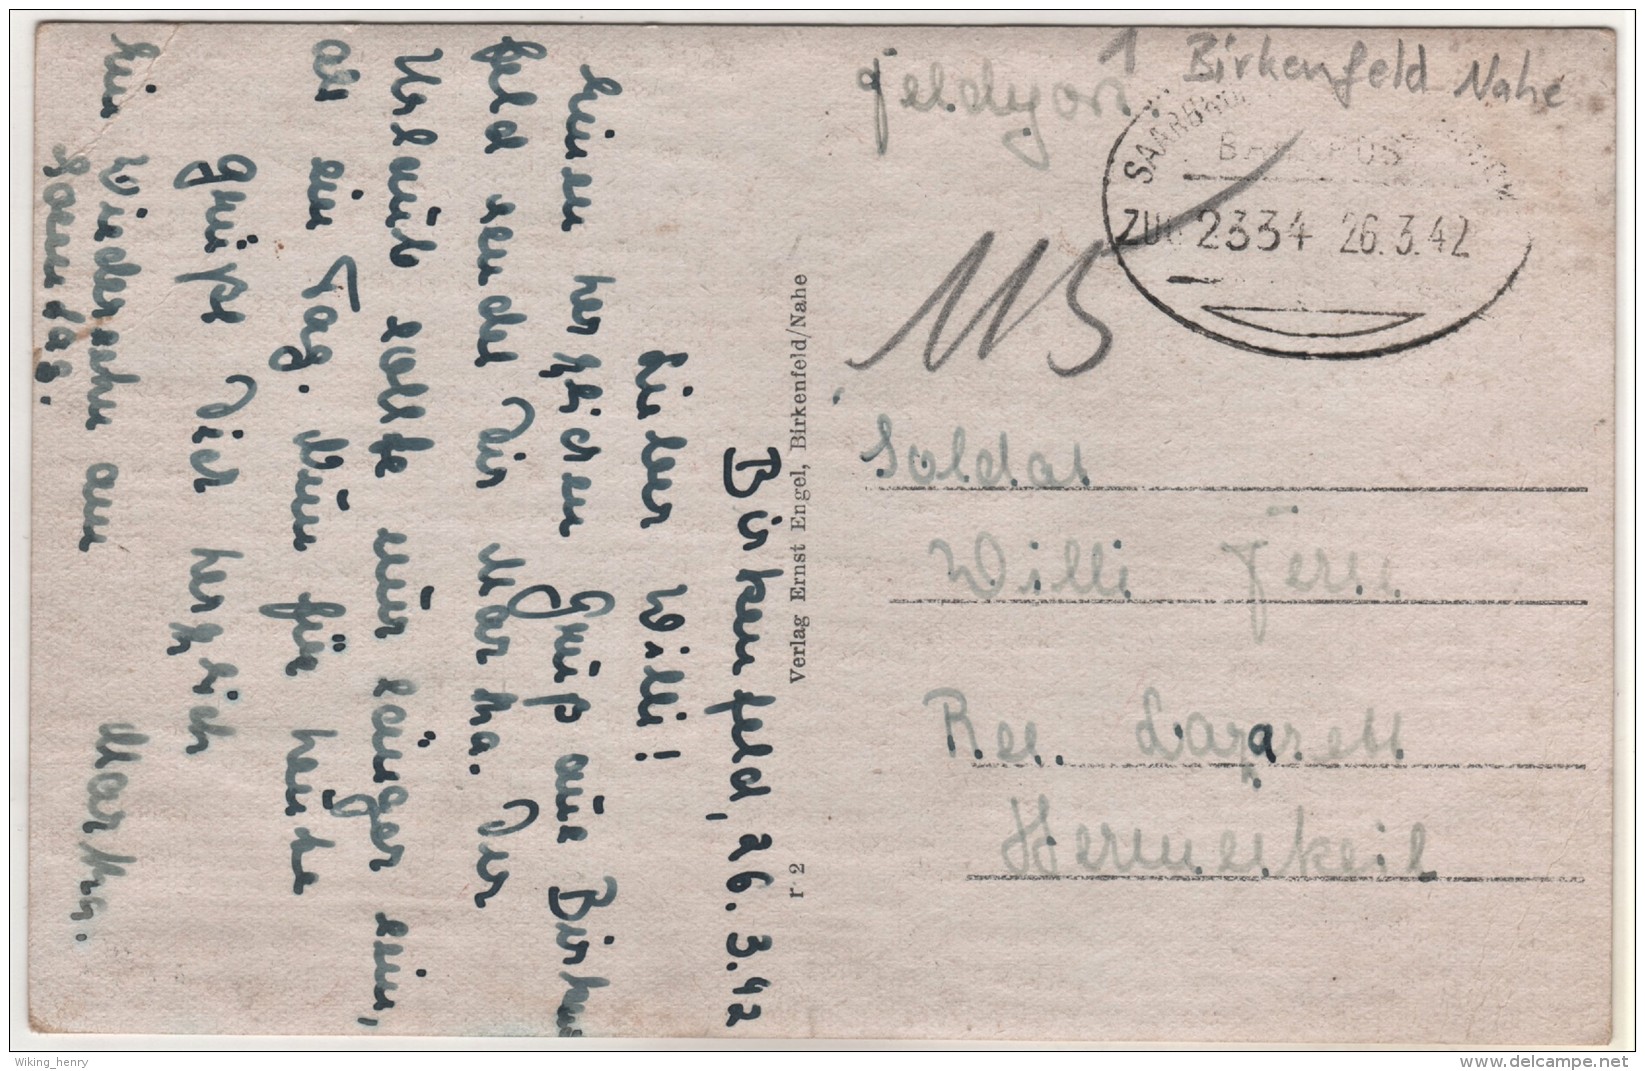 Birkenfeld, 26.3.42
Lieber Willi!
Einen herzlichen Gruß aus Birken
feld sendet Dir Martha. Der
Urlaub sollte nur länger sein,
als ein Tag. Nun für heute
grüße Dich herzlich
Ein Wiedersehn am
Sonntag.
Martha.
Verlag Ernst Engel, Birkenfeld/Nahe
r 2
Feldpost
1 Birkenfeld Nahe
BAHNPOST
ZUG 2334 26.3.42
115
Soldat
Willi
Res. Lazarett
Hermeskeil
Wiking_henry
www.delcampe.net